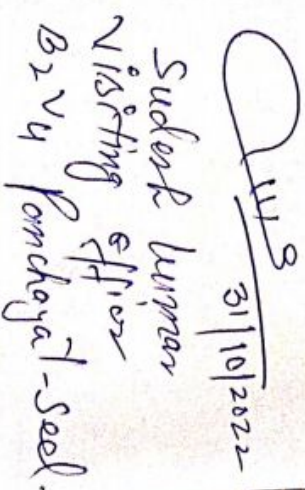 31/10/2022
Sudesh Kumar
Visiting Officer
B2V4 Panchayat - Seel.